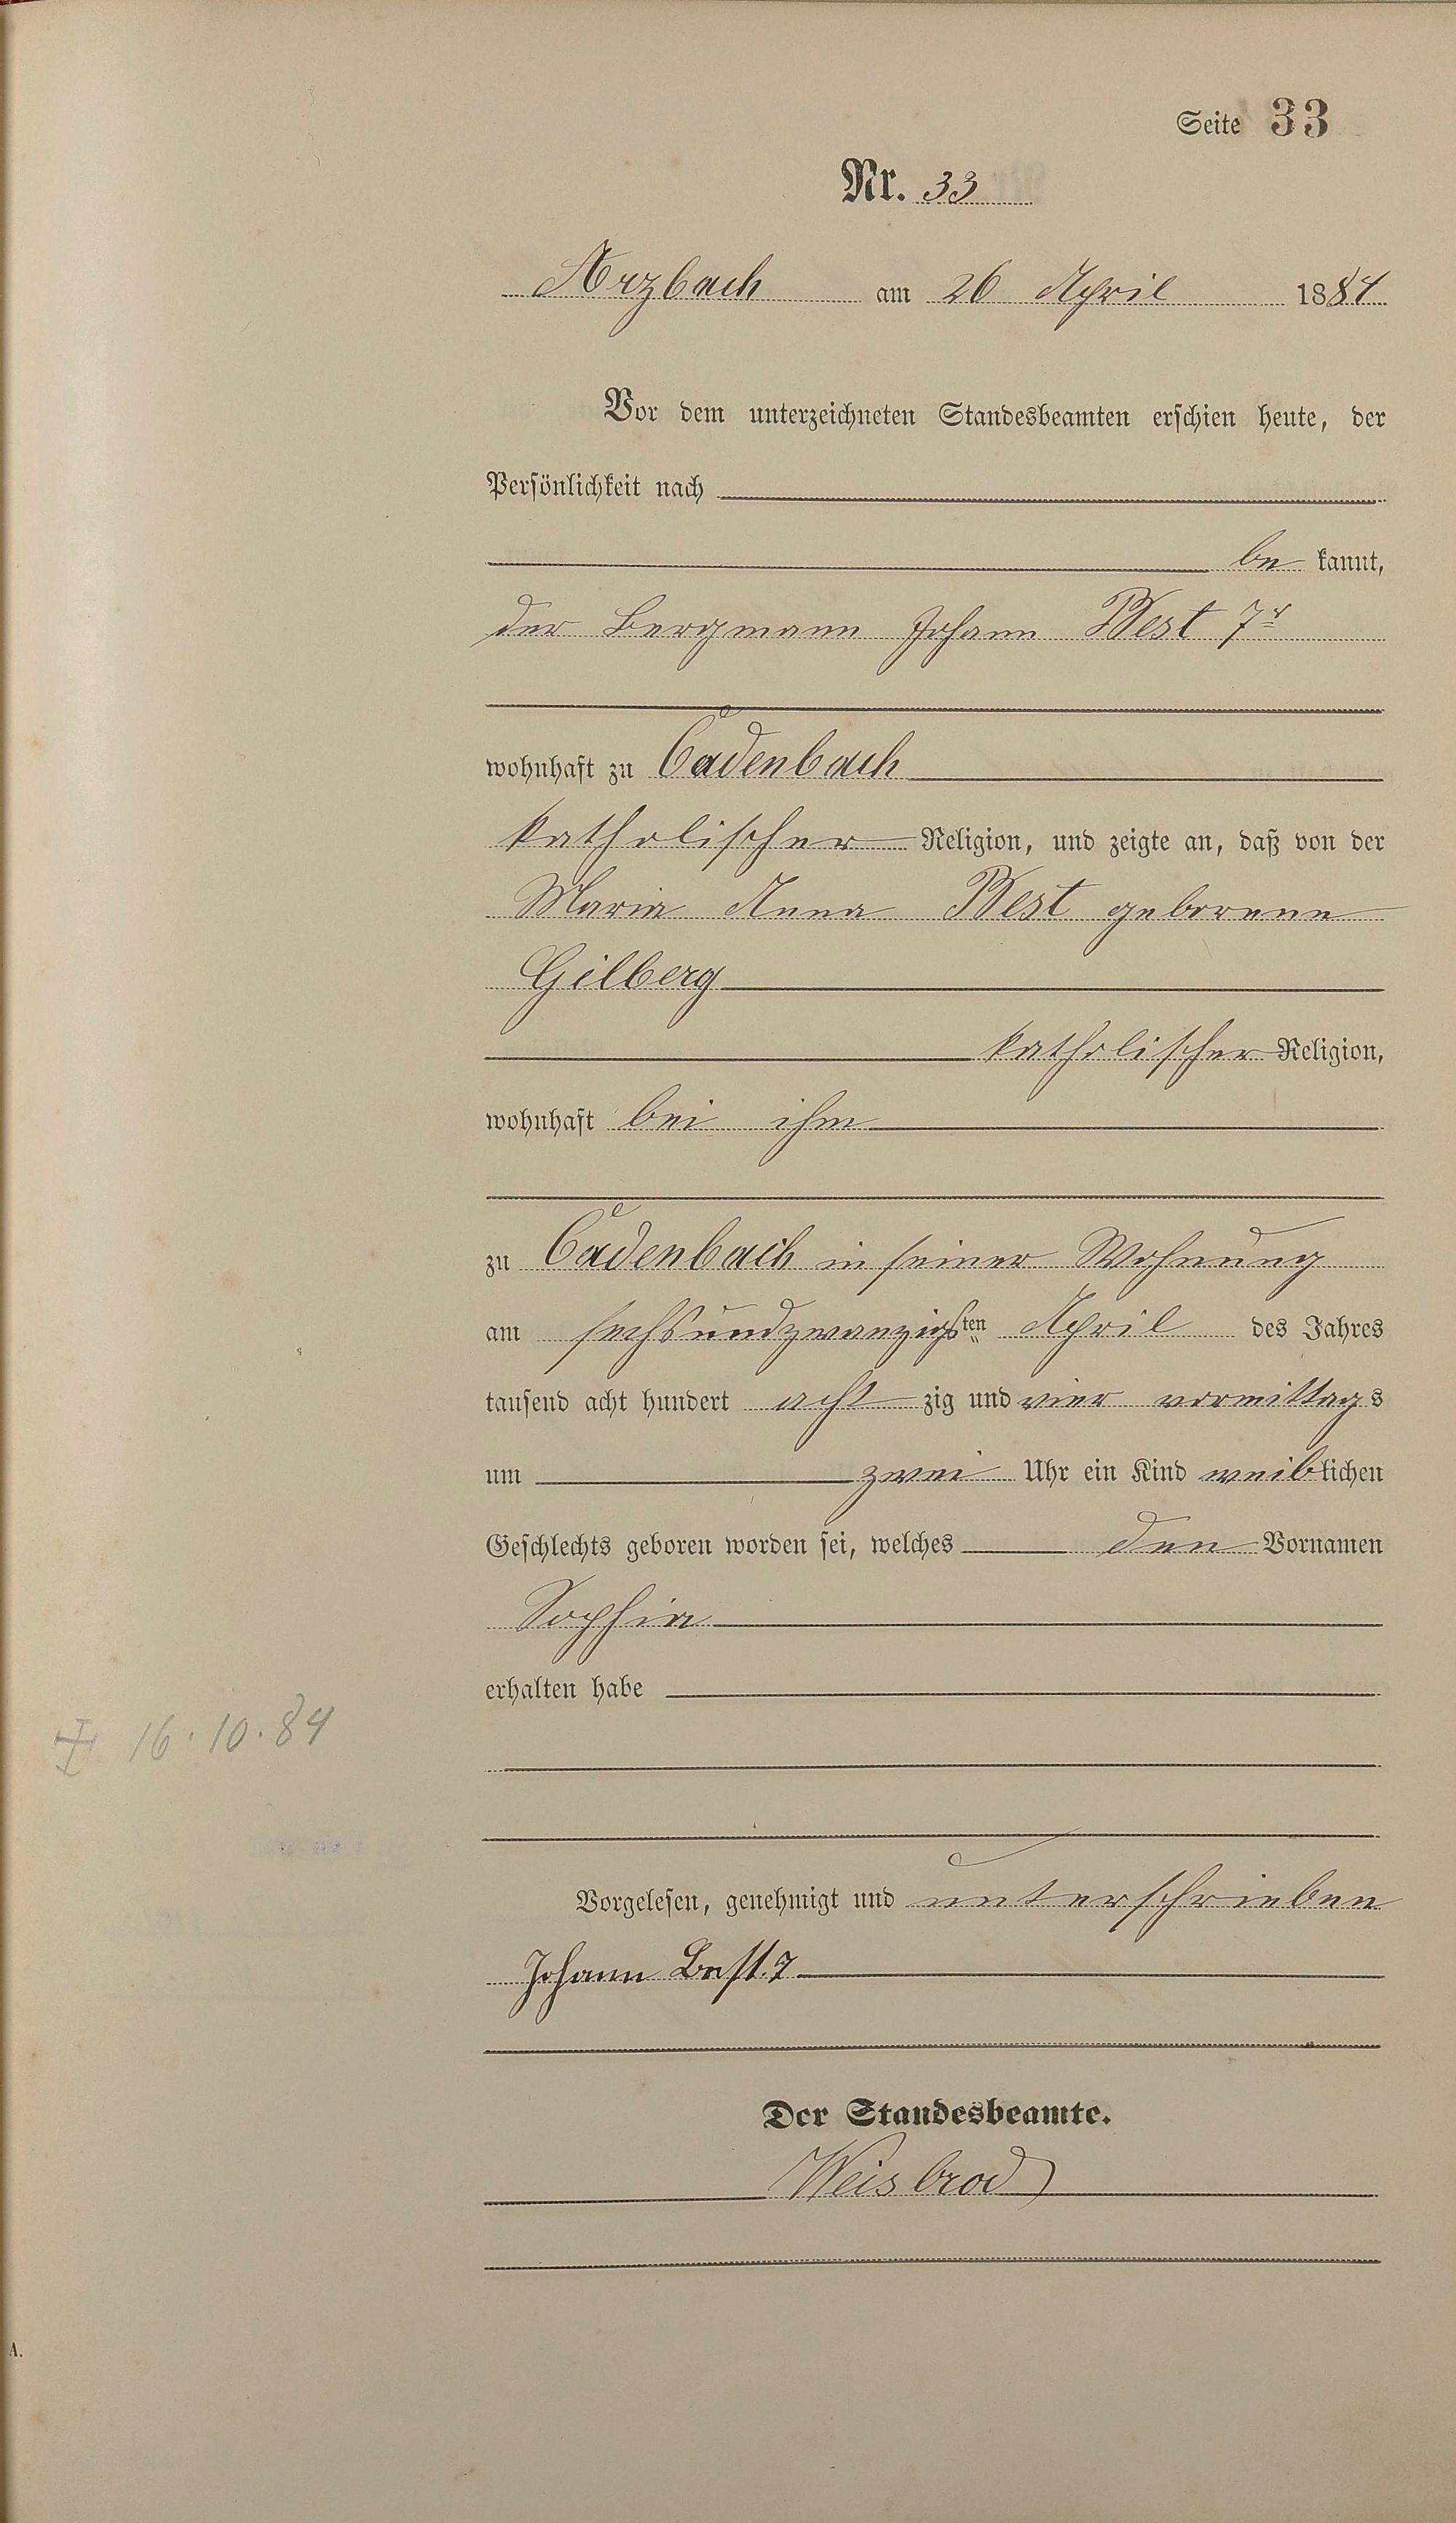 Seite 33
Nr. 33
Arzbach am 26 April 1884
Vor dem unterzeichneten Standesbeamten erschien heute, der
Persönlichkeit nach
be kannt,
der Bergmann Johann Best 7r
wohnhaft zu Cadenbach
katholischer Religion, und zeigte an, daß von der
Maria Anna Best geborene
Gilberg
katholischer Religion,
wohnhaft bei ihm
zu Cadenbach in seiner Wohnung
am sechsundzwanzigsten April des Jahres
tausend acht hundert acht zig und vier vormittags
um zwei Uhr ein Kind weiblichen
Geschlechts geboren worden sei, welches den Vornamen
Sophia
erhalten habe
16.10.84
Vorgelesen, genehmigt und unterschrieben
Johann Best. 7
Der Standesbeamte.
Weisbrod
A.